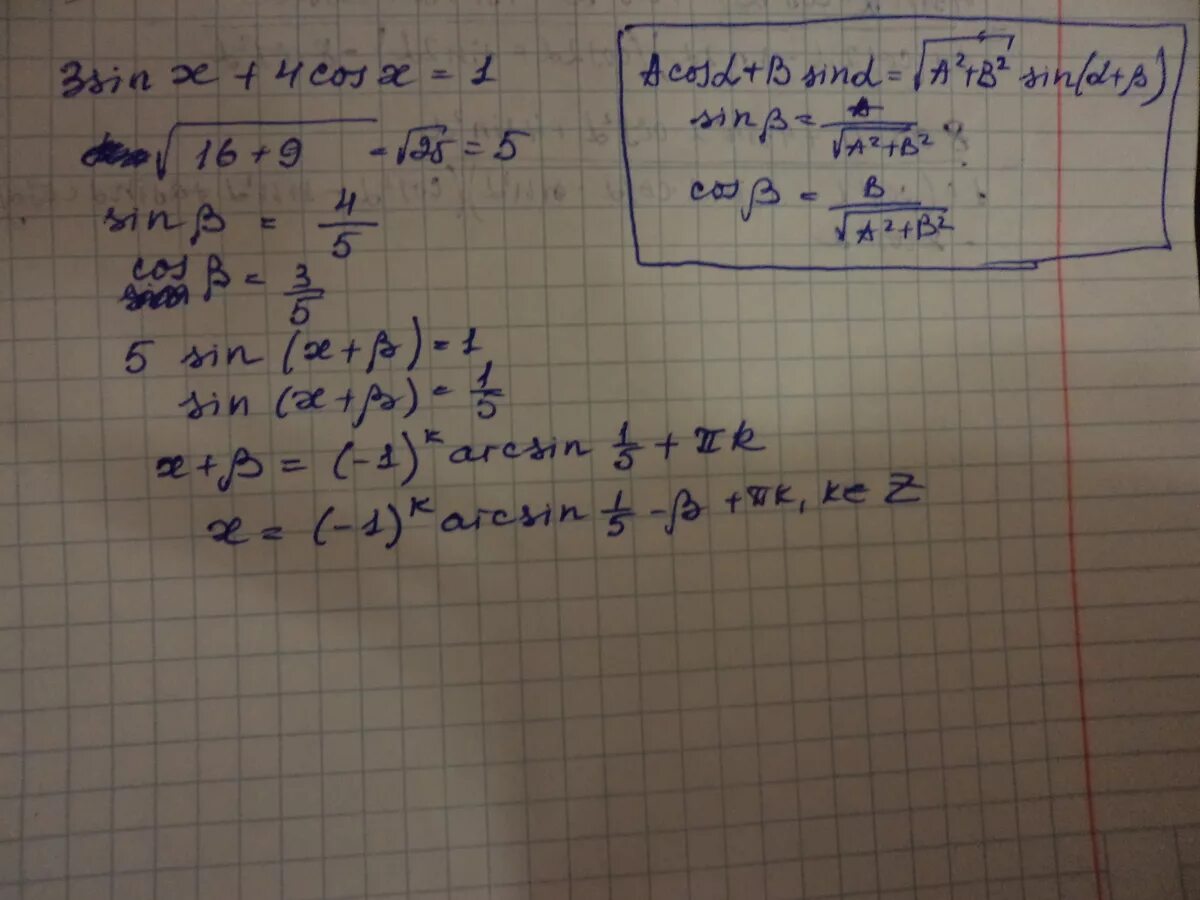 3 sin x + 4 cos x = 1
√(16 + 9) = √25 = 5
sin β = 4/5
cos β = 3/5
5 sin (x + β) = 1
sin (x + β) = 1/5
x + β = (-1)^k arcsin 1/5 + πk
x = (-1)^k arcsin 1/5 - β + πk, k ∈ Z
A cos α + B sin α = √(A² + B²) sin(α + β)
sin β = A/√(A² + B²)
cos β = B/√(A² + B²)